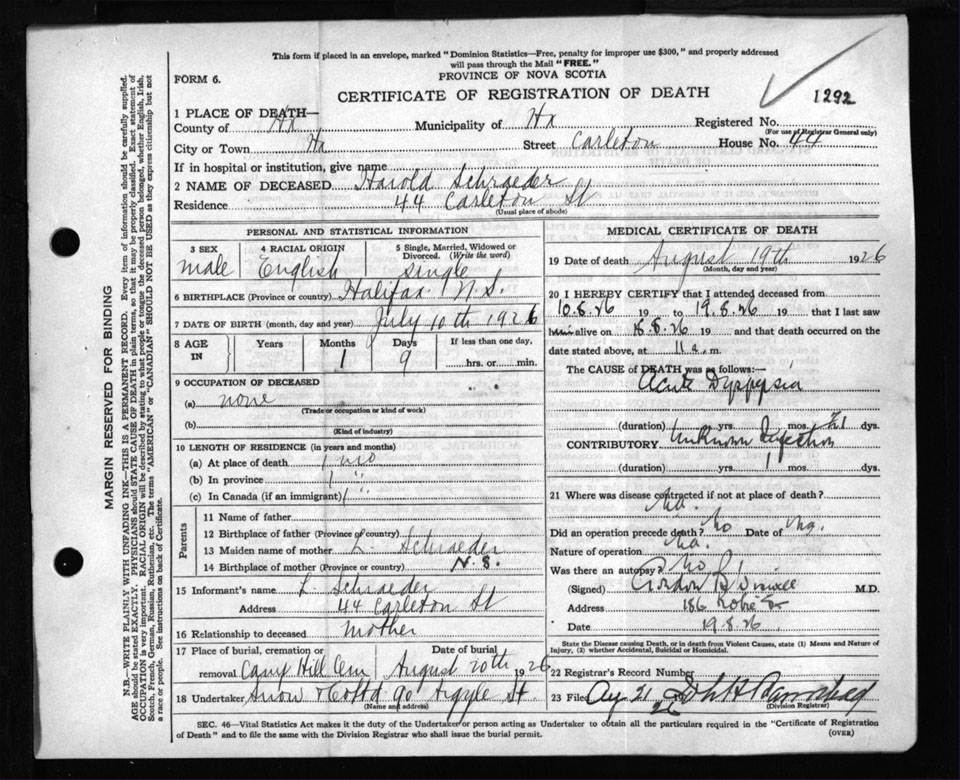 This form if placed in an envelope, marked "Dominion Statistics—Free, penalty for improper use $300," and properly addressed
will pass through the Mail "FREE."
FORM 6.
PROVINCE OF NOVA SCOTIA
CERTIFICATE OF REGISTRATION OF DEATH
1292
1 PLACE OF DEATH—
County of Hx Municipality of Hx Registered No.
(For use of Registrar General only)
City or Town Hx Street Carleton House No. 44
If in hospital or institution, give name
2 NAME OF DECEASED Harold Schraeder
Residence 44 Carleton St
(Usual place of abode)
PERSONAL AND STATISTICAL INFORMATION
3 SEX 4 RACIAL ORIGIN 5 Single, Married, Widowed or
Divorced. (Write the word)
male English single
6 BIRTHPLACE (Province or country) Halifax N.S.
7 DATE OF BIRTH (month, day and year) July 10th 1926
8 AGE IN Years Months Days If less than one day,
1 9 hrs. or min.
9 OCCUPATION OF DECEASED
(a) none
(Trade or occupation or kind of work)
(b)
(Kind of industry)
10 LENGTH OF RESIDENCE (in years and months)
(a) At place of death 1 mo
(b) In province 1 "
(c) In Canada (if an immigrant) 1 "
Parents
11 Name of father
12 Birthplace of father (Province or country)
13 Maiden name of mother L. Schraeder
14 Birthplace of mother (Province or country) N.S.
15 Informant's name L. Schraeder
Address 44 Carleton St
16 Relationship to deceased mother
17 Place of burial, cremation or Date of burial
removal Camp Hill Cem August 20th 1926
18 Undertaker Snow & Co Ltd 90 Argyle St.
(Name and address)
MEDICAL CERTIFICATE OF DEATH
19 Date of death August 19th 1926
(Month, day and year)
20 I HEREBY CERTIFY that I attended deceased from
10.8.26 19 to 19.8.26 19 that I last saw
him alive on 18.8.26 19 and that death occurred on the
date stated above, at 11 a. m.
The CAUSE OF DEATH was as follows:—
Acute Dyspepsia
(duration) yrs. mos. 21 dys.
CONTRIBUTORY Unknown Infection
(duration) yrs. 1 mos. dys.
21 Where was disease contracted if not at place of death?
Did an operation precede death? No Date of
Nature of operation
Was there an autopsy? No
(Signed) Gordon B. M.D.
Address 186
Date 19.8.26
State the Disease causing Death, or in death from Violent Causes, state (1) Means and Nature of
Injury, (2) whether Accidental, Suicidal or Homicidal.
22 Registrar's Record Number
23 Filed Aug 21 26
(Division Registrar)
SEC. 46—Vital Statistics Act makes it the duty of the Undertaker or person acting as Undertaker to obtain all the particulars required in the "Certificate of Registration
of Death" and to file the same with the Division Registrar who shall issue the burial permit.
(OVER)
MARGIN RESERVED FOR BINDING
N.B.—WRITE PLAINLY WITH UNFADING INK—THIS IS A PERMANENT RECORD. Every item of information should be carefully supplied.
AGE should be stated EXACTLY. PHYSICIANS should STATE CAUSE OF DEATH in plain terms, so that it may be properly classified. Exact statement of
OCCUPATION is very important. RACIAL ORIGIN will be described by stating to what people or tongue the deceased person belonged, whether English, Irish,
Scotch, French, German, Russian, Ruthenian, etc. The terms "AMERICAN" or "CANADIAN" SHOULD NOT BE USED as they express citizenship but not
a race or people. See instructions on back of Certificate.